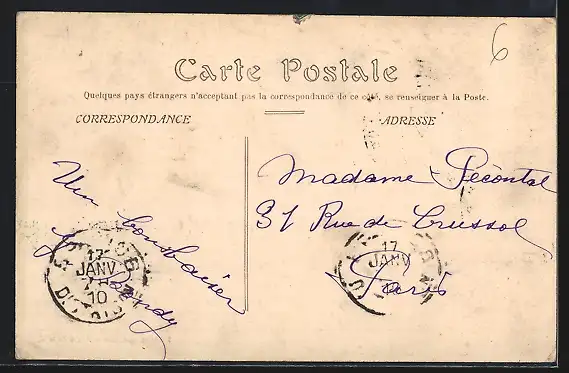 6
Carte Postale
Quelques pays étrangers n'acceptant pas la correspondance de ce côté, se renseigner à la Poste.
CORRESPONDANCE
ADRESSE
Un bon baiser
Madame Pécontal
31 Rue de Crussol
Paris
17
JANV
10
17
JANV